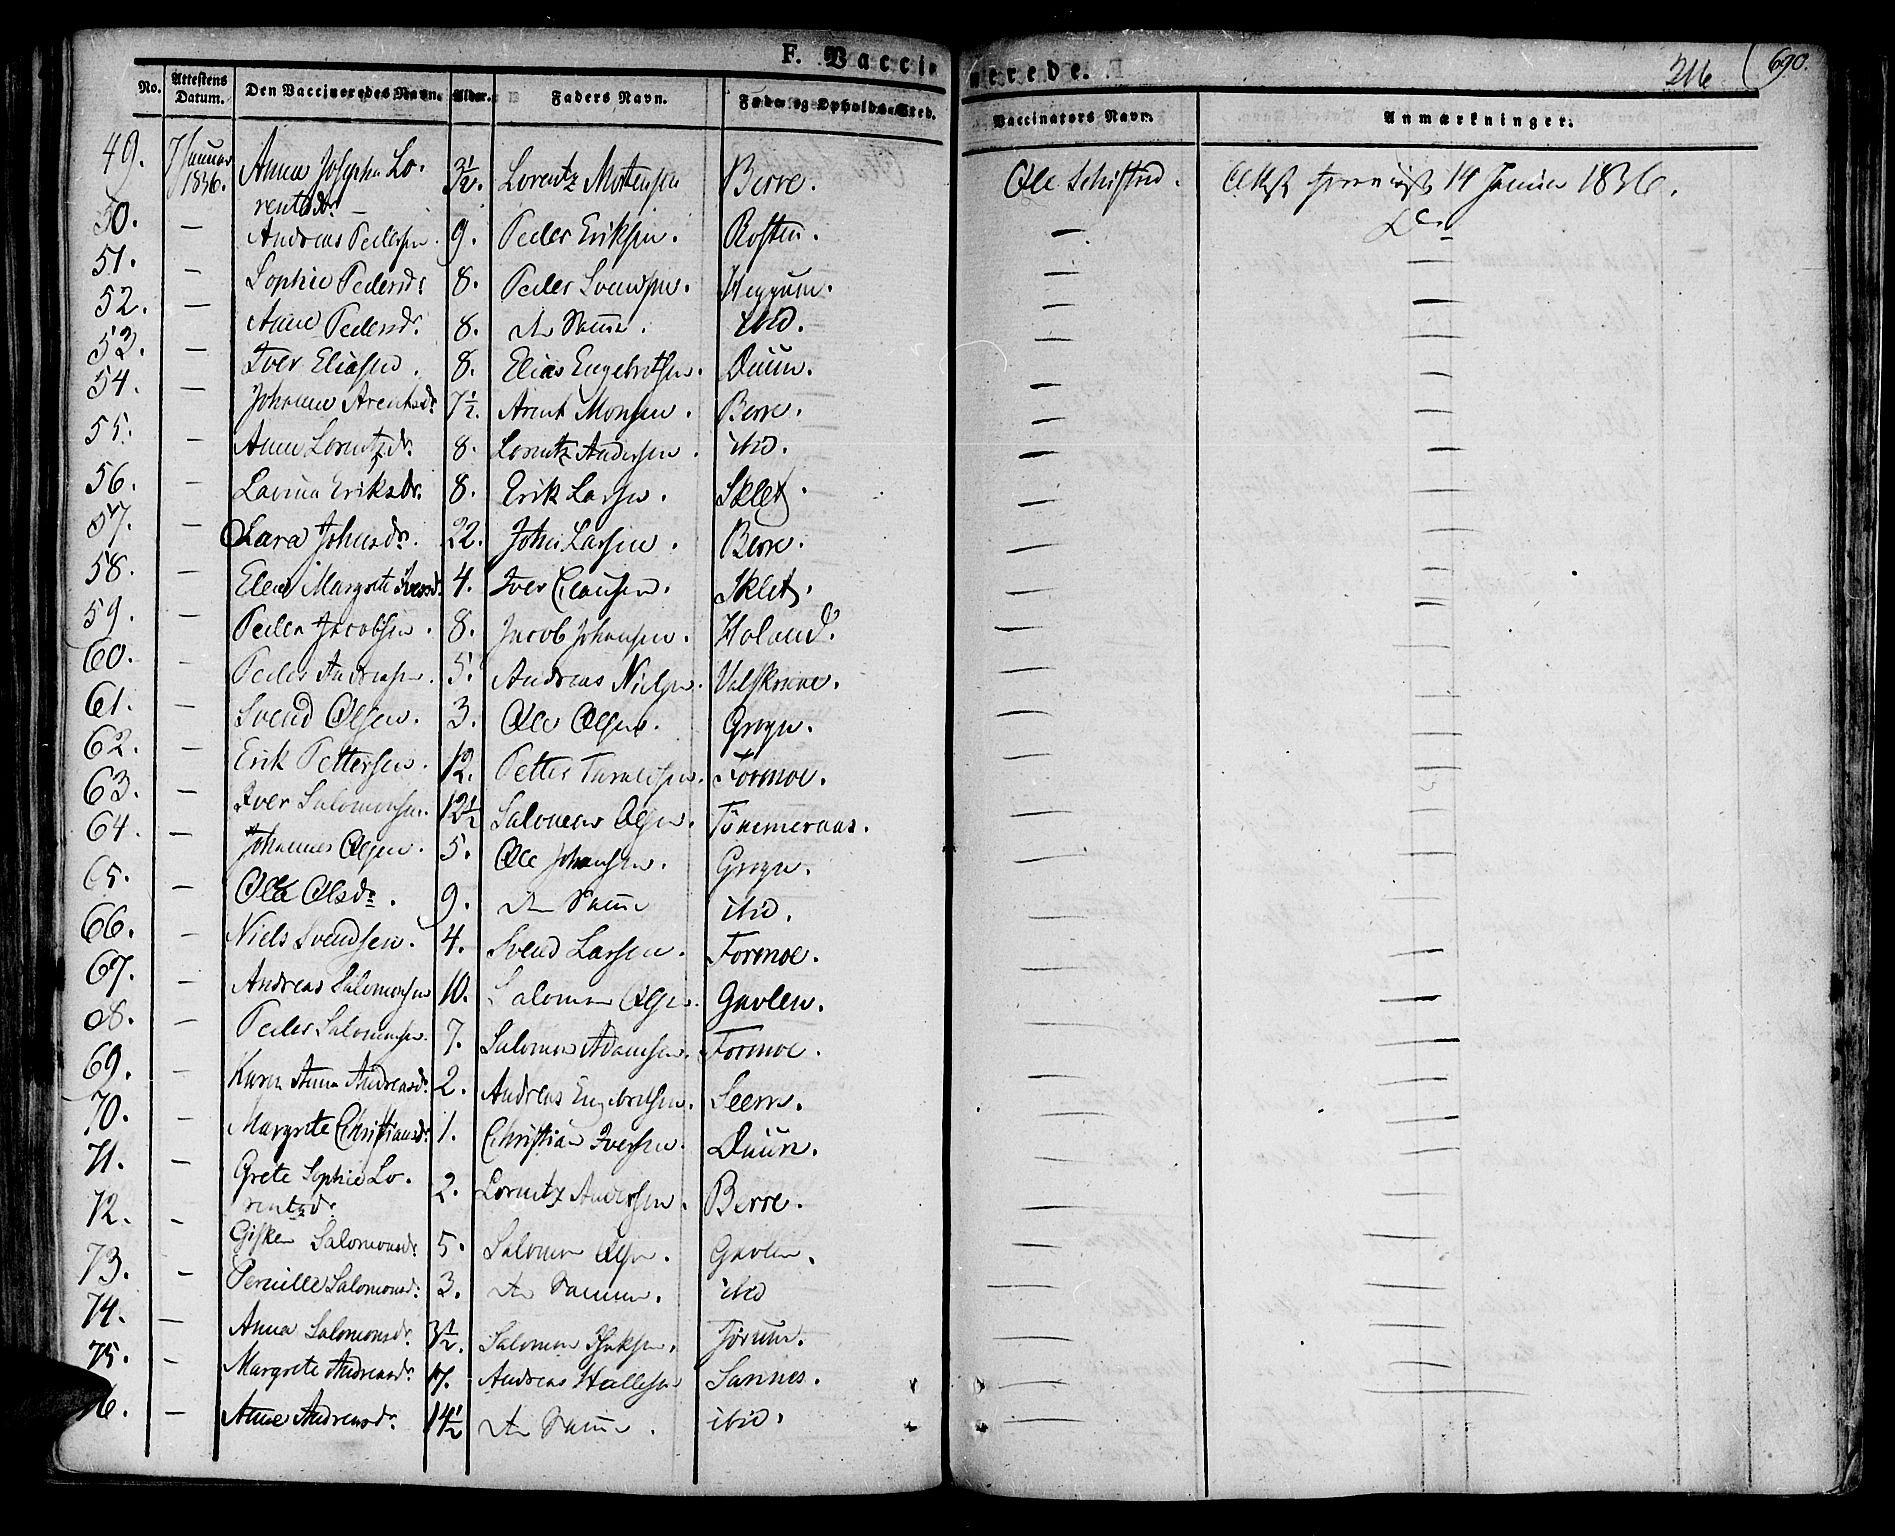 F. Vaccinerede.
216 (690.
No. Attestens Datum. Den Vaccineredes Navn. Alder. Faders Navn. Føde- og Opholds-Sted. Vaccinators Navn. Anmærkninger.
49. 7 Januar 1836. Anne Josepha Lorentsdr. 3½. Lorentz Mortensen Berre. Ole Schistad. Attest 14 Januar 1836.
50. — Andreas Pedersen. 9. Peder Eriksen. Rosten. — Do
51. — Sophie Pedersdr: 8. Peder Svendsen. Heggum. — —
52. — Anne Pedersdr. 8. den Samme. ibid. — —
53. — Iver Eliasen. 8. Elias Engebretsen. Duun. — —
54. — Johanna Arentsdr. 7½. Arent Monsen. Berre. — —
55. — Anne Lorentzdr. 8. Lorentz Andersen. ibid. — —
56. — Lavina Eriksdr. 8. Erik Larsen. Sklet. — —
57. — Sara Johnsdr. 22. John Larsen. Berre. — —
58. — Elen Margrete Iversd. 4. Iver Clausen. Sklet. — —
59. — Peder Jacobsen. 8. Jacob Johansen. Holand. — —
60. — Peder Andreasen. 5. Andreas Nielsen. Valskraae. — —
61. — Svend Olsen. 3. Ole Olsen. Grogn. — —
62. — Erik Pettersen. 12. Petter Taraldsen. Formoe. — —
63. — Iver Salomonsen. 12½ Salomon Olsen. Tømmeraas. — —
64. — Johannes Olsen. 5. Ole Johansen. Grogn. — —
65. — Olea Olsdr. 9. den Samme ibid. — —
66. — Niels Svendsen. 4. Svend Larsen. Formoe. — —
67. — Andreas Salomonsen 10. Salomon Olsen. Gavlen. — —
68. — Peder Salomonsen. 7. Salomon Adamsen. Formoe. — —
69. — Karen Anna Andreasdr. 2. Andreas Engebretsen. Seem. — —
70. — Margrete Christiansdr. 1. Christian Iversen. Duun. — —
71. — Grete Sophie Lorentzdr. 2. Lorentz Andersen. Berre. — —
72. — Gisken Salomonsdr: 5. Salomon Olsen. Gavlen. — —
73. — Pernille Salomonsd: 3. den Samme. ibid — —
74. — Anna Salomonsdr. 3½. Salomon Isaksen. Jørum. — —
75. — Margrete Andreasdr. 17. Andreas Hallesen Sannes. — —
76. — Anne Andreasdr. 14½ den Samme. ibid. — —